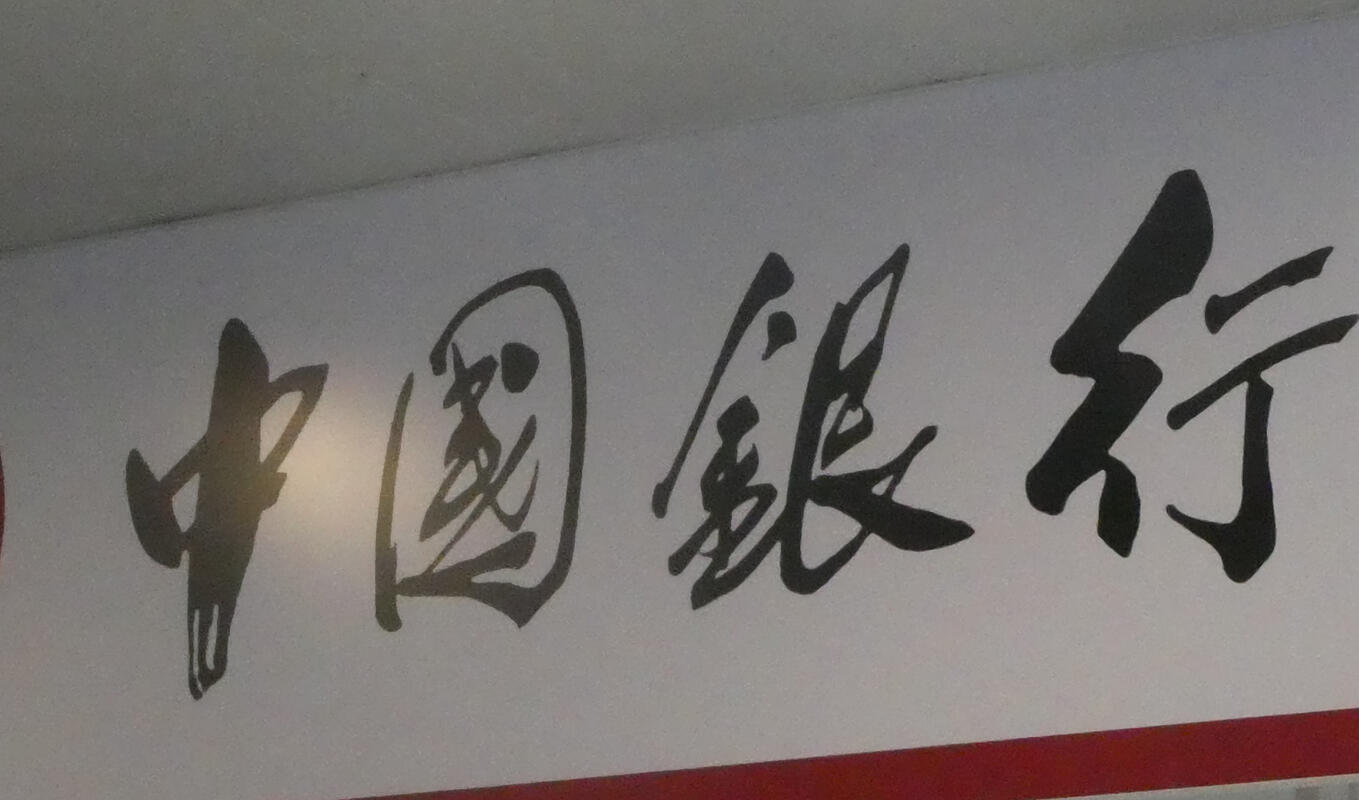 中國銀行